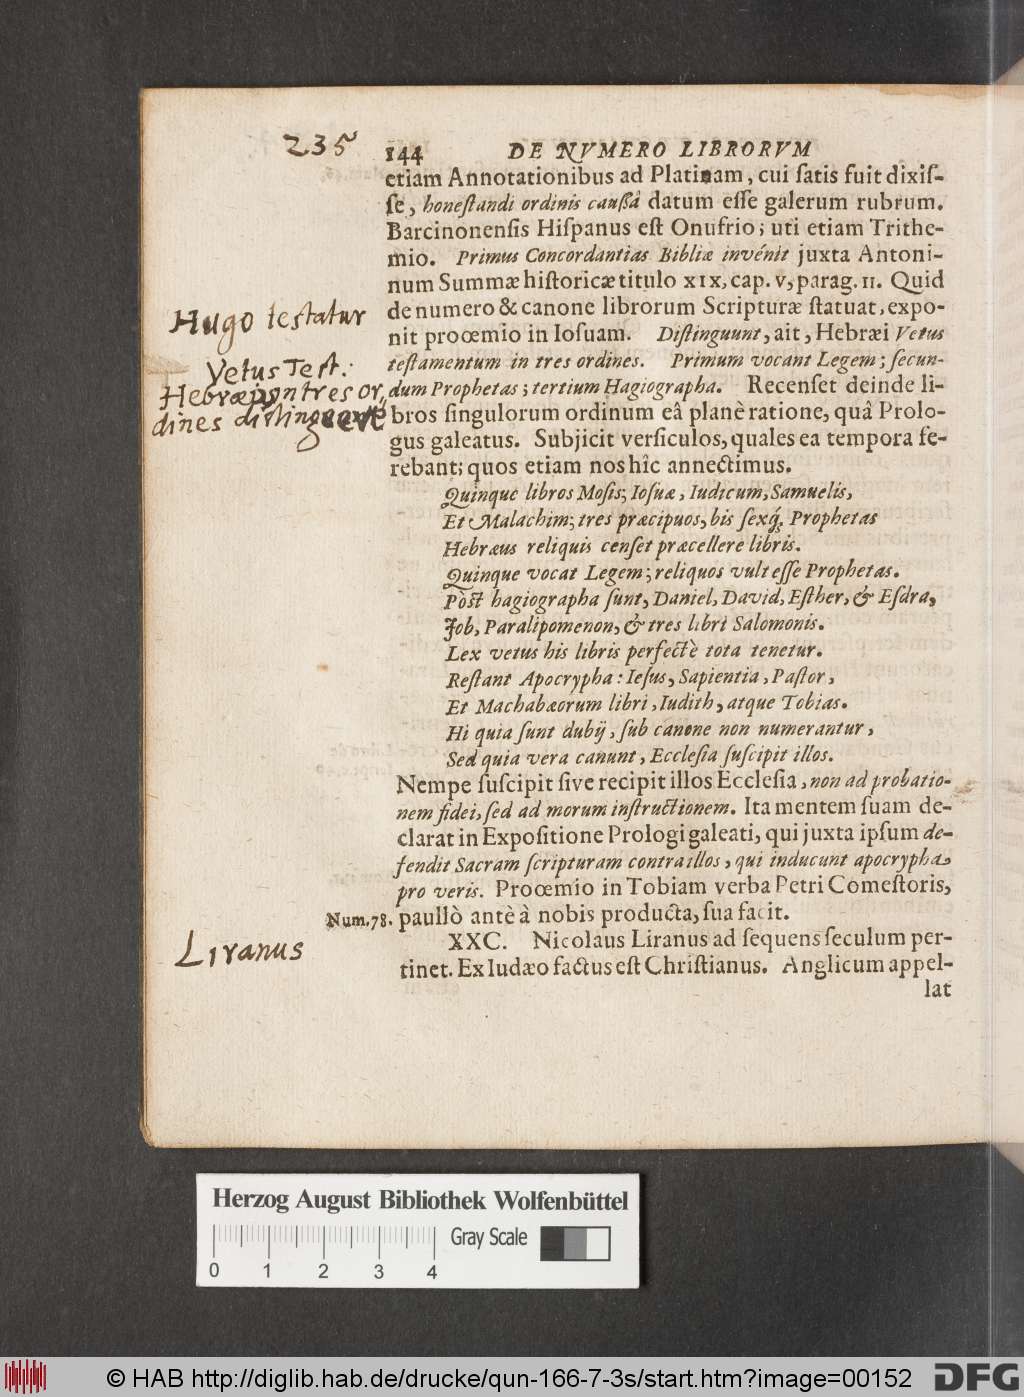 235
144 DE NVMERO LIBRORVM
etiam Annotationibus ad Platinam, cui ſatis fuit dixiſ-
ſe, honeſtandi ordinis cauſſâ datum eſſe galerum rubrum.
Barcinonenſis Hiſpanus eſt Onufrio; uti etiam Trithe-
mio. Primus Concordantias Bibliæ invénit juxta Antoni-
num Summæ hiſtoricæ titulo XIX, cap. V, parag. II. Quid
de numero & canone librorum Scripturæ ſtatuat, expo-
Hugo testatur
nit proœmio in Ioſuam. Diſtinguunt, ait, Hebræi Vetus
teſtamentum in tres ordines. Primum vocant Legem; ſecun-
Vetus Test.
Hebræi in tres or,
dines distinguere
dum Prophetas; tertium Hagiographa. Recenſet deinde li-
bros ſingulorum ordinum eâ planè ratione, quâ Prolo-
gus galeatus. Subjicit verſiculos, quales ea tempora fe-
rebant; quos etiam nos hîc annectimus.
Quinque libros Moſis; Ioſuæ, Iudicum, Samuelis,
Et Malachim; tres præcipuos, bis ſexq́; Prophetas
Hebræus reliquis cenſet præcellere libris.
Quinque vocat Legem; reliquos vult eſſe Prophetas.
Pòſt hagiographa ſunt, Daniel, David, Eſther, & Eſdra,
Job, Paralipomenon, & tres libri Salomonis.
Lex vetus his libris perfectè tota tenetur.
Reſtant Apocrypha: Ieſus, Sapientia, Paſtor,
Et Machabæorum libri, Iudith, atque Tobias.
Hi quia ſunt dubij, ſub canone non numerantur,
Sed quia vera canunt, Eccleſia ſuſcipit illos.
Nempe ſuſcipit ſive recipit illos Eccleſia, non ad probatio-
nem fidei, ſed ad morum inſtructionem. Ita mentem ſuam de-
clarat in Expoſitione Prologi galeati, qui juxta ipſum de-
fendit Sacram ſcripturam contra illos, qui inducunt apocrypha
pro veris. Proœmio in Tobiam verba Petri Comeſtoris,
Num. 78. paullò antè à nobis producta, ſua facit.
Liranus
XXC. Nicolaus Liranus ad ſequens ſeculum per-
tinet. Ex Iudæo factus eſt Chriſtianus. Anglicum appel-
lat
Herzog August Bibliothek Wolfenbüttel
Gray Scale
0 1 2 3 4
© HAB http://diglib.hab.de/drucke/qun-166-7-3s/start.htm?image=00152
DFG